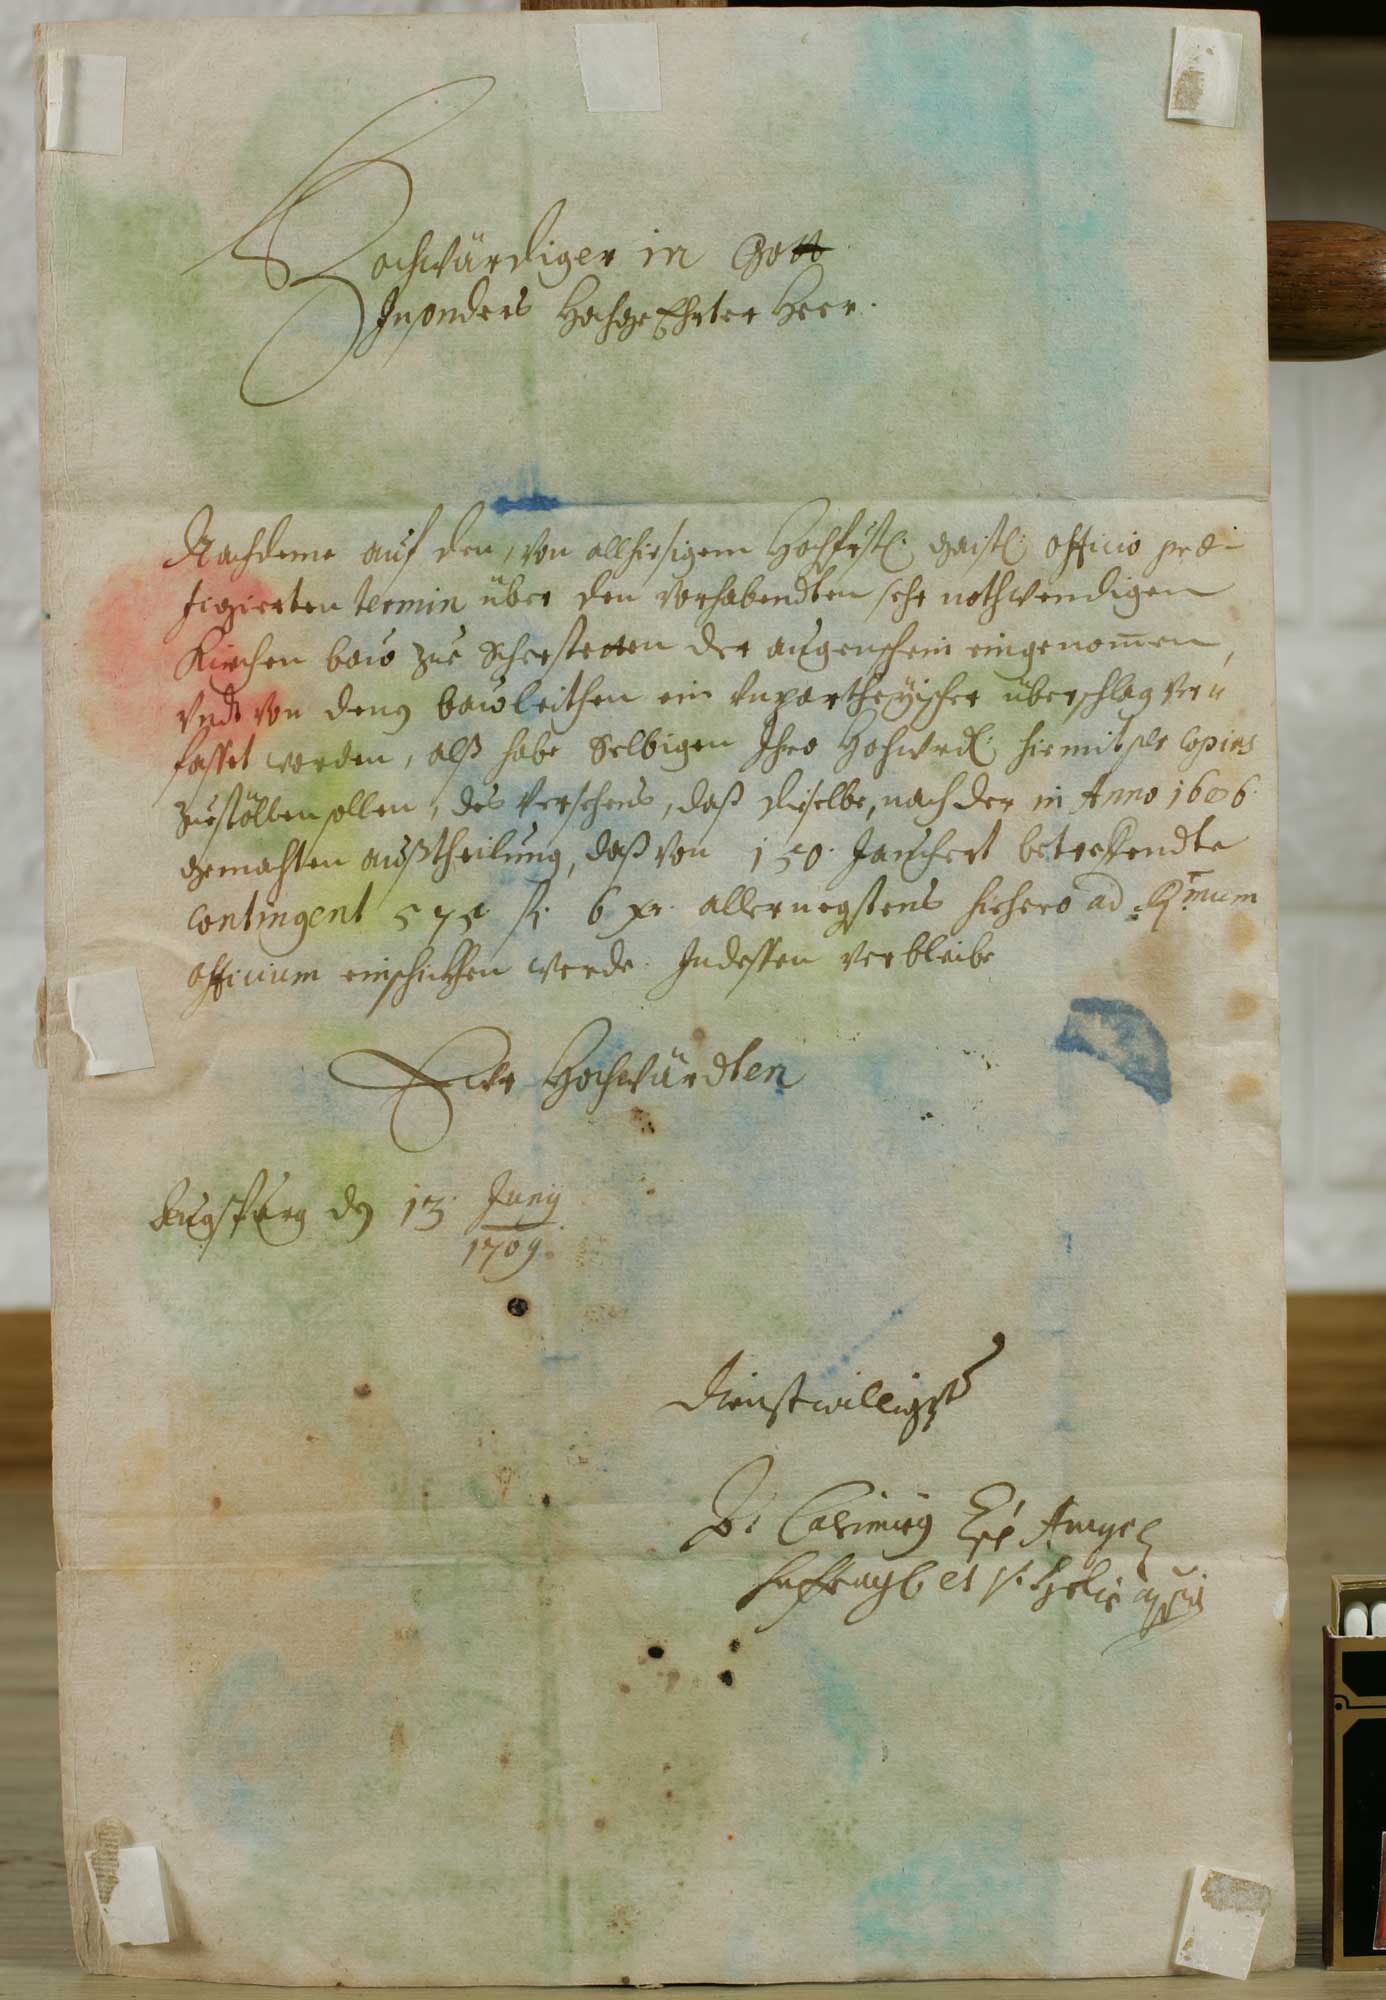 Hochwürdiger in Gott
Insonders Hochge Ehrter Herr.
Nachdeme auf den, von allhiesigem Hochfrstl: gaistl: officio præ-
figierten termin über den vorhabendten sehr nothwendigen
Kirchen baw zue Scherstetten der augenschein eingenomen,
vndt von denen bawleithen ein vnpartheyischer überschlag ver-
fasset worden, alß habe Selbigen Ihro Hochwrd: hiemit per Copias
zuestöllen sollen, des Versehens, daß dieselbe, nach der in Anno 1606
gemachten außtheilung, daß von 150. Jauchert betreffendte
Contingent 575 fl. 6 xr. allernegstens hiehero ad Rmum
officium einschickhen werde. Indessen verbleibe
Ewr Hochwürdten
Augspurg den 13. Junij
1709.
Dienstwilligster